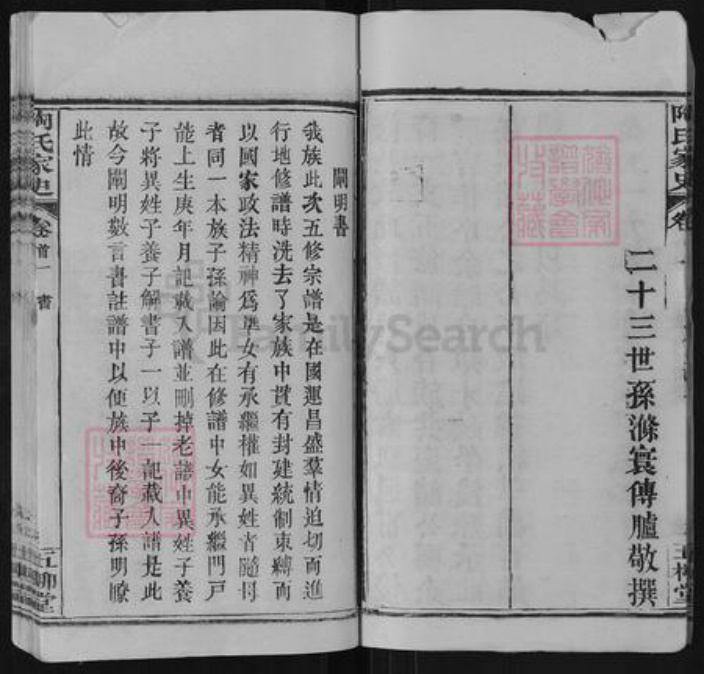 二十三世孫滌寰傳臚敬撰
闡明書
我族此次五修宗譜是在國運昌盛羣情迫切而進
行地修譜時洗去了家族中貫有封建統制束縛而
以國家政法精神爲準女有承繼權如異姓者隨母
者同一本族子孫論因此在修譜中女能承繼門戶
能上生庚年月記載入譜並刪掉老譜中異姓子養
子將異姓子養子解書子一以子一記載入譜是此
故今闡明數言書註譜中以便族中後裔子孫明瞭
此情
陶氏家史 卷首一 書
五柳堂
陶氏家史 卷
五柳堂
FamilySearch